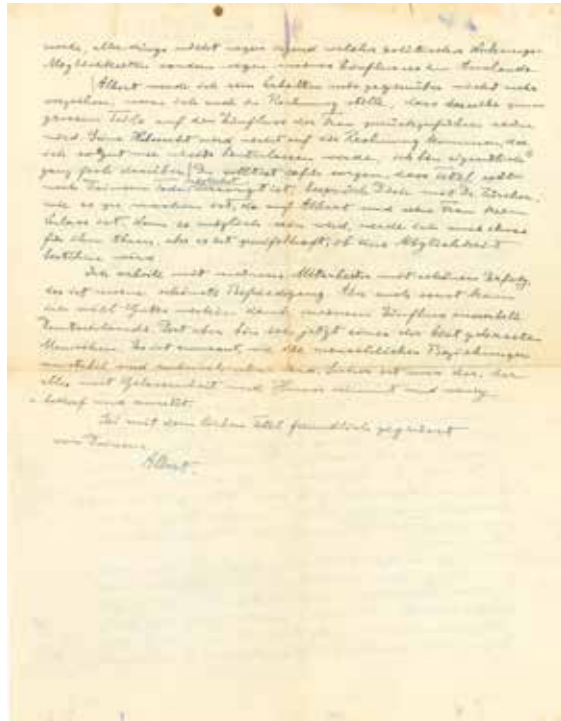 werde, allerdings nicht wegen irgend welcher politischer
Möglichkeiten sondern wegen meines Einflusses im Auslande
Albert werde ich sein Verhalten mir gegenüber nicht
vergessen, wenn ich auch in Rechnung stelle, dass dasselbe zum
grossen Teile auf den Einfluss der Frau zurückzuführen sein
wird. Seine wird nicht auf die Rechnung kommen, da
ich so gut wie nichts hinterlassen werde, ich bin eigentlich
ganz froh darüber. Du solltest dafür sorgen, dass Tetel
nach Deinem Tode versorgt ist, besprich Dich mit Dr. Zürcher,
wie es zu machen ist, da auf Albert und seine Frau kein
Verlass ist. Wenn es möglich sein wird, werde ich auch etwas
für ihn thun, aber es ist zweifelhaft, ob eine Möglichkeit
bestehen wird.
Ich arbeite mit meinem Mitarbeiter mit schönem Erfolg,
das ist meine schönste Befriedigung. Aber auch sonst kann
ich viel Gutes wirken dank meinem Einfluss ausserhalb
Deutschlands. Dort aber bin ich jetzt einer der bestgehassten
Menschen. Es ist amüsant, wie die menschlichen Beziehungen
sind. Sicher ist nur der, der
alles mit Gelassenheit und Humor nimmt und wenig
bedarf und
Sei mit dem lieben Tetel freundlich gegrüsst
von Deinem
Albert.